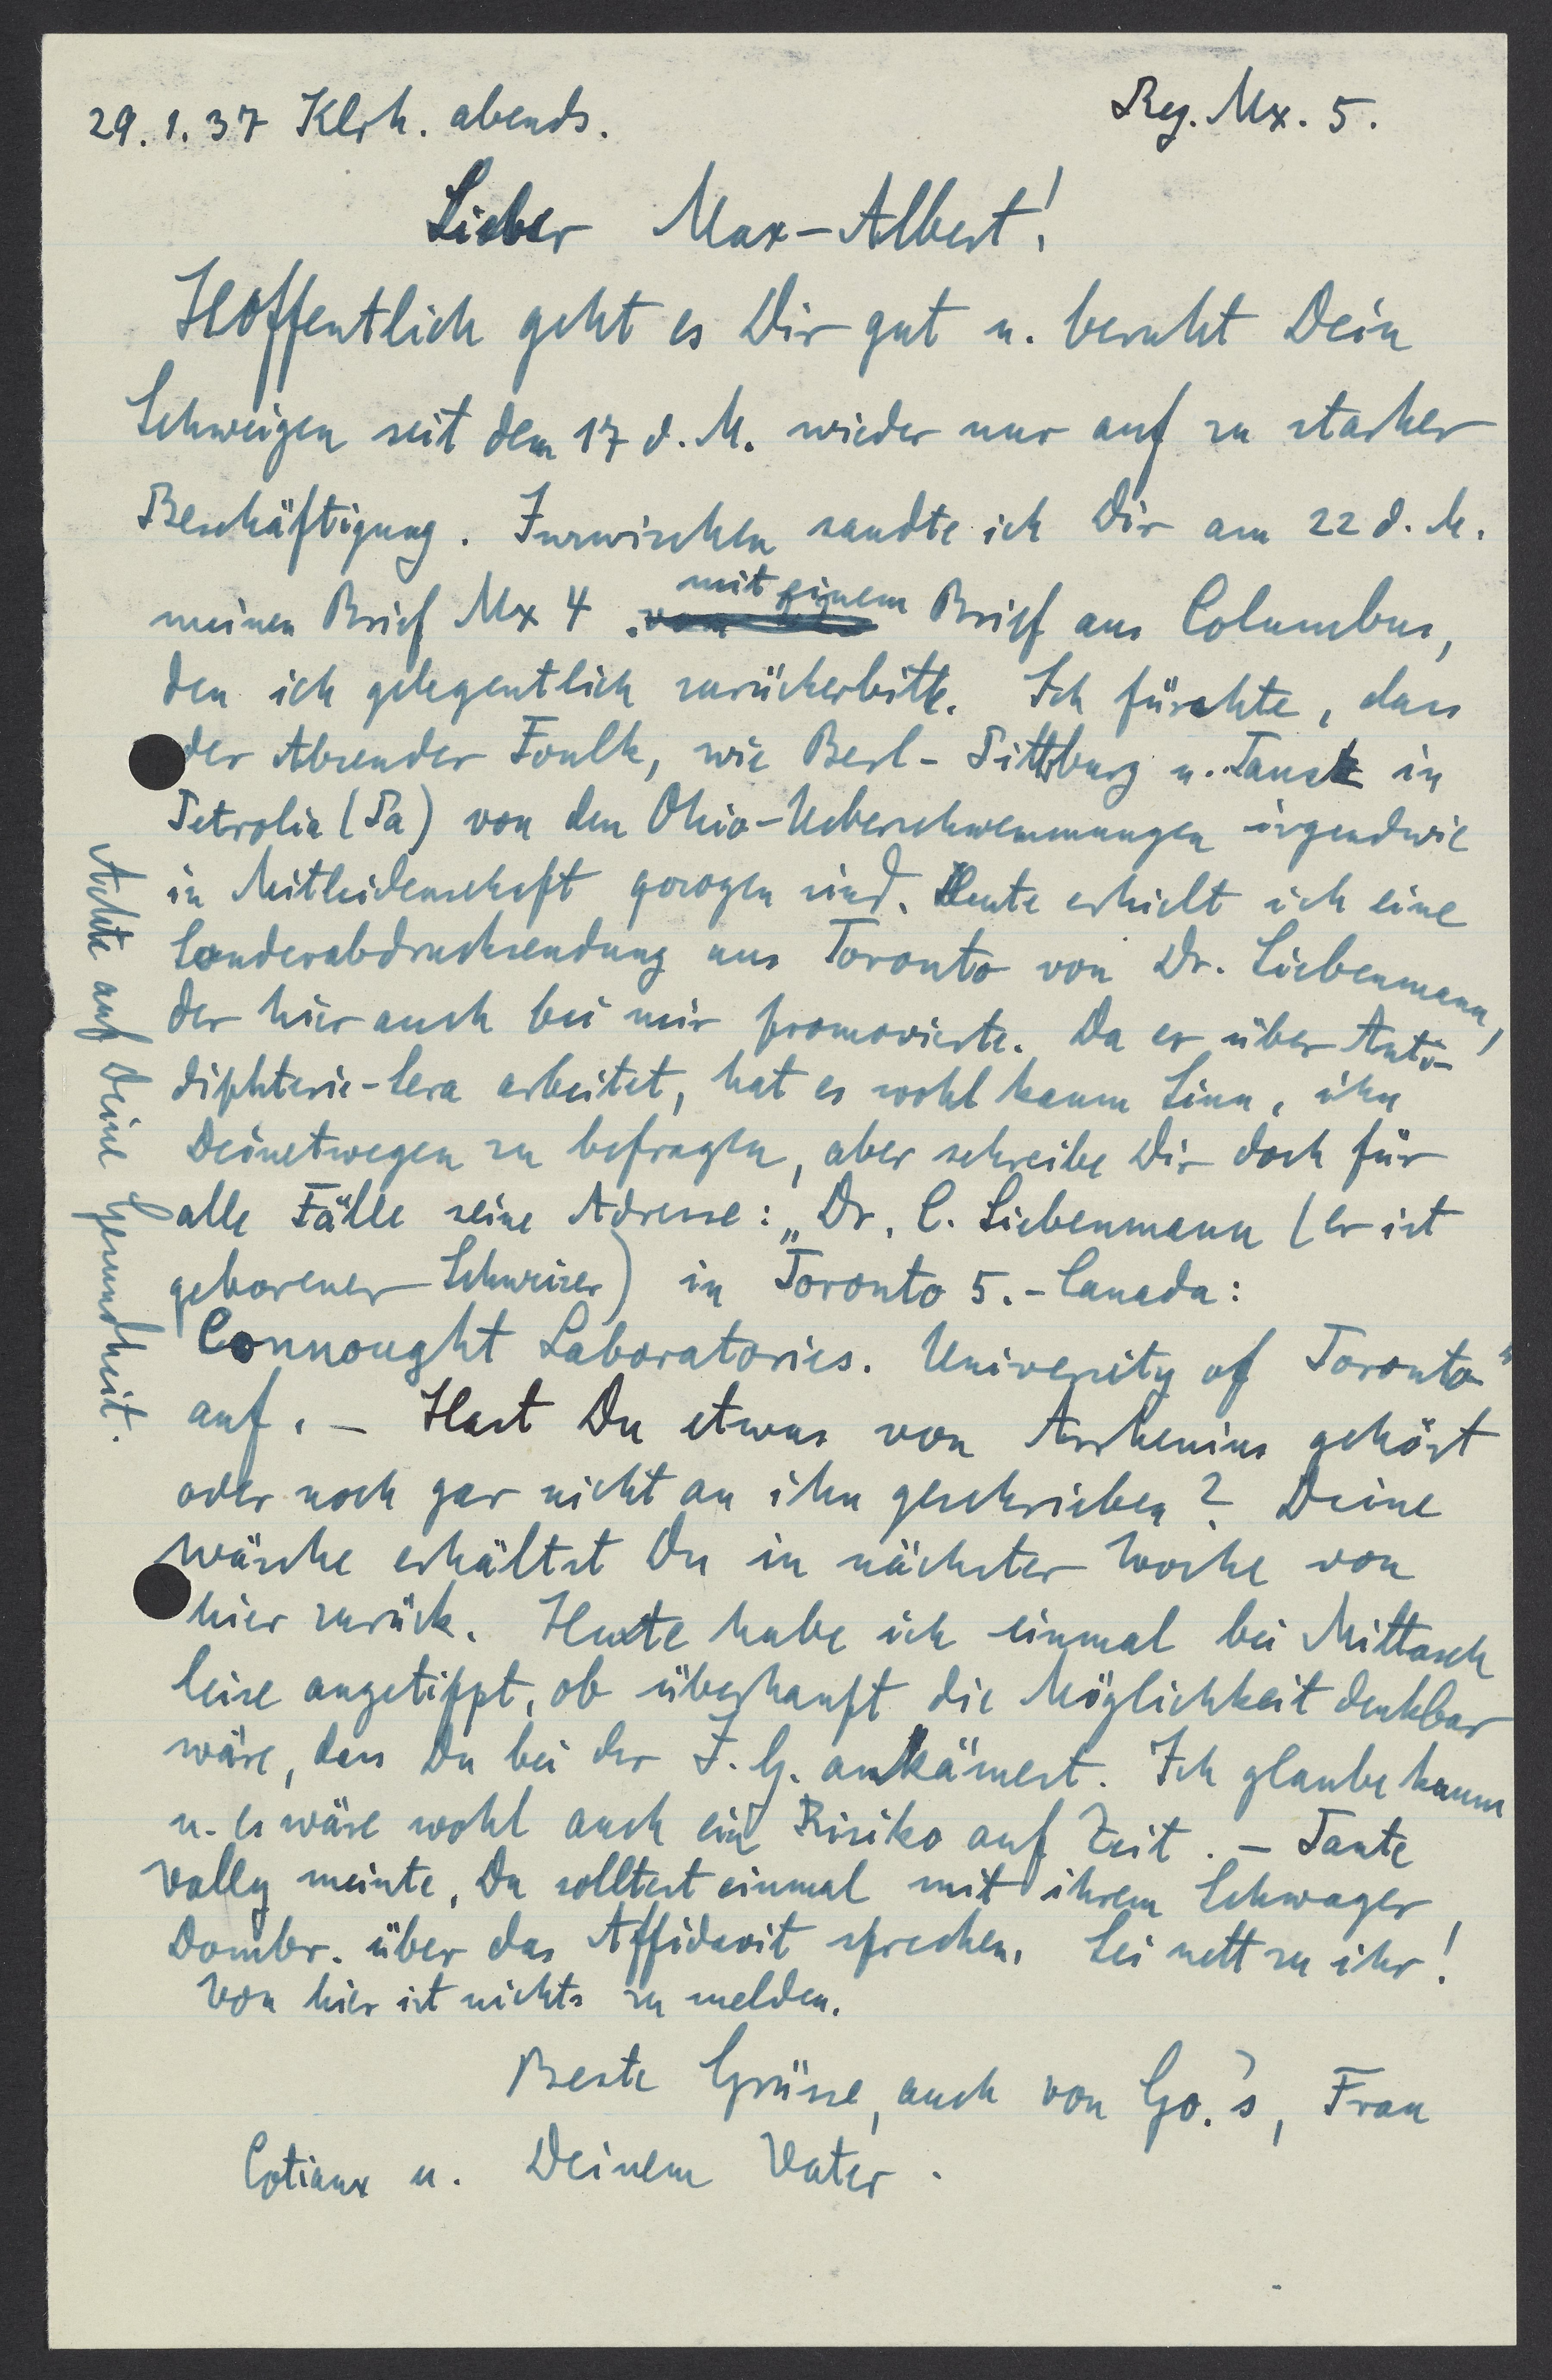 29.1.37 Klrh. abends.
Reg. Mx. 5.
Lieber Max-Albert!
Hoffentlich geht es Dir gut u. beruht Dein
Schweigen seit dem 17 d. M. wieder nur auf zu starker
Beschäftigung. Inzwischen sandte ich Dir am 22 d. M.
mit einem
meinen Brief Mx 4 Brief aus Columbus,
den ich gelegentlich zurückerbitte. Ich fürchte, dass
der Absender Foulk, wie Berl-Pittsburg u. Tausk in
Petrolia (Pa) von den Ohio-Ueberschwemmungen irgendwie
in Mitleidenschaft gezogen sind. Heute erhielt ich eine
Sonderabdrucksendung aus Toronto von Dr. Siebenmann,
der hier auch bei mir promovierte. Da er über Anti-
diphterie-Sera arbeitet, hat es wohl kaum Sinn, ihn
Deinetwegen zu befragen, aber schreibe Dir doch für
alle Fälle seine Adresse: „Dr. C. Siebenmann (er ist
geborener Schweizer) in Toronto 5.-Canada:
Connought Laboratories. University of Toronto"
auf. – Hast Du etwas von Arrhenius gehört
oder noch gar nicht an ihn geschrieben? Deine
Wäsche erhältst Du in nächster Woche von
hier zurück. Heute habe ich einmal bei Mittasch
leise angetippt, ob überhaupt die Möglichkeit denkbar
wäre, dass Du bei der I. G. ankämest. Ich glaube kaum
u. es wäre wohl auch ein Risiko auf Zeit. – Tante
Vally meinte, Du solltest einmal mit ihrem Schwager
Dombr. über das Affidavit sprechen. Sei nett zu ihr!
Von hier ist nichts zu melden.
Beste Grüsse, auch von Go.'s, Frau
Cotiaux u. Deinem Vater.
Achte auf Deine Gesundheit.